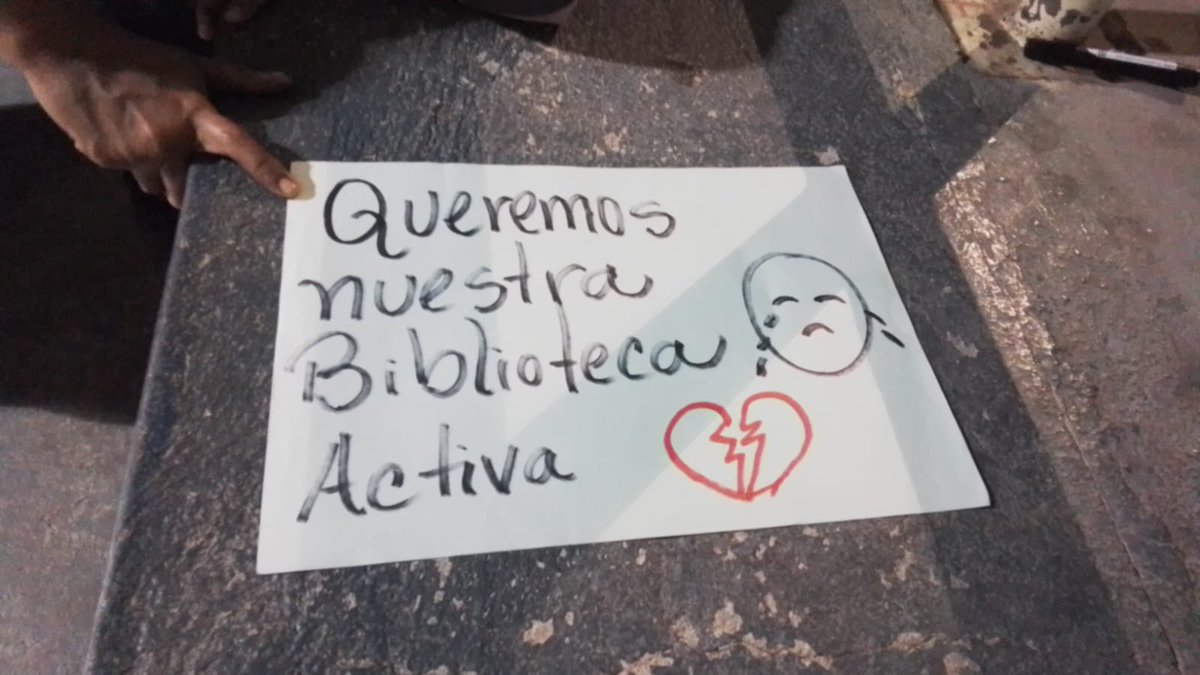 Queremos
nuestra
Biblioteca
Activa